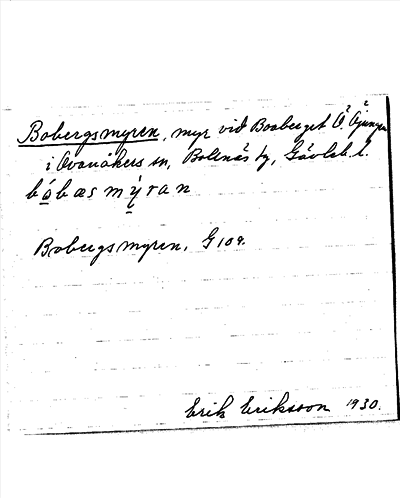 Bobergsmyren, myr vid Booberget Ö. Öjungen
i Ovanåkers sn, Bollnäs tg, Gävleb. l.
bóbæsmýran
Bobergsmyren, G 109.
Erik Eriksson 1930.